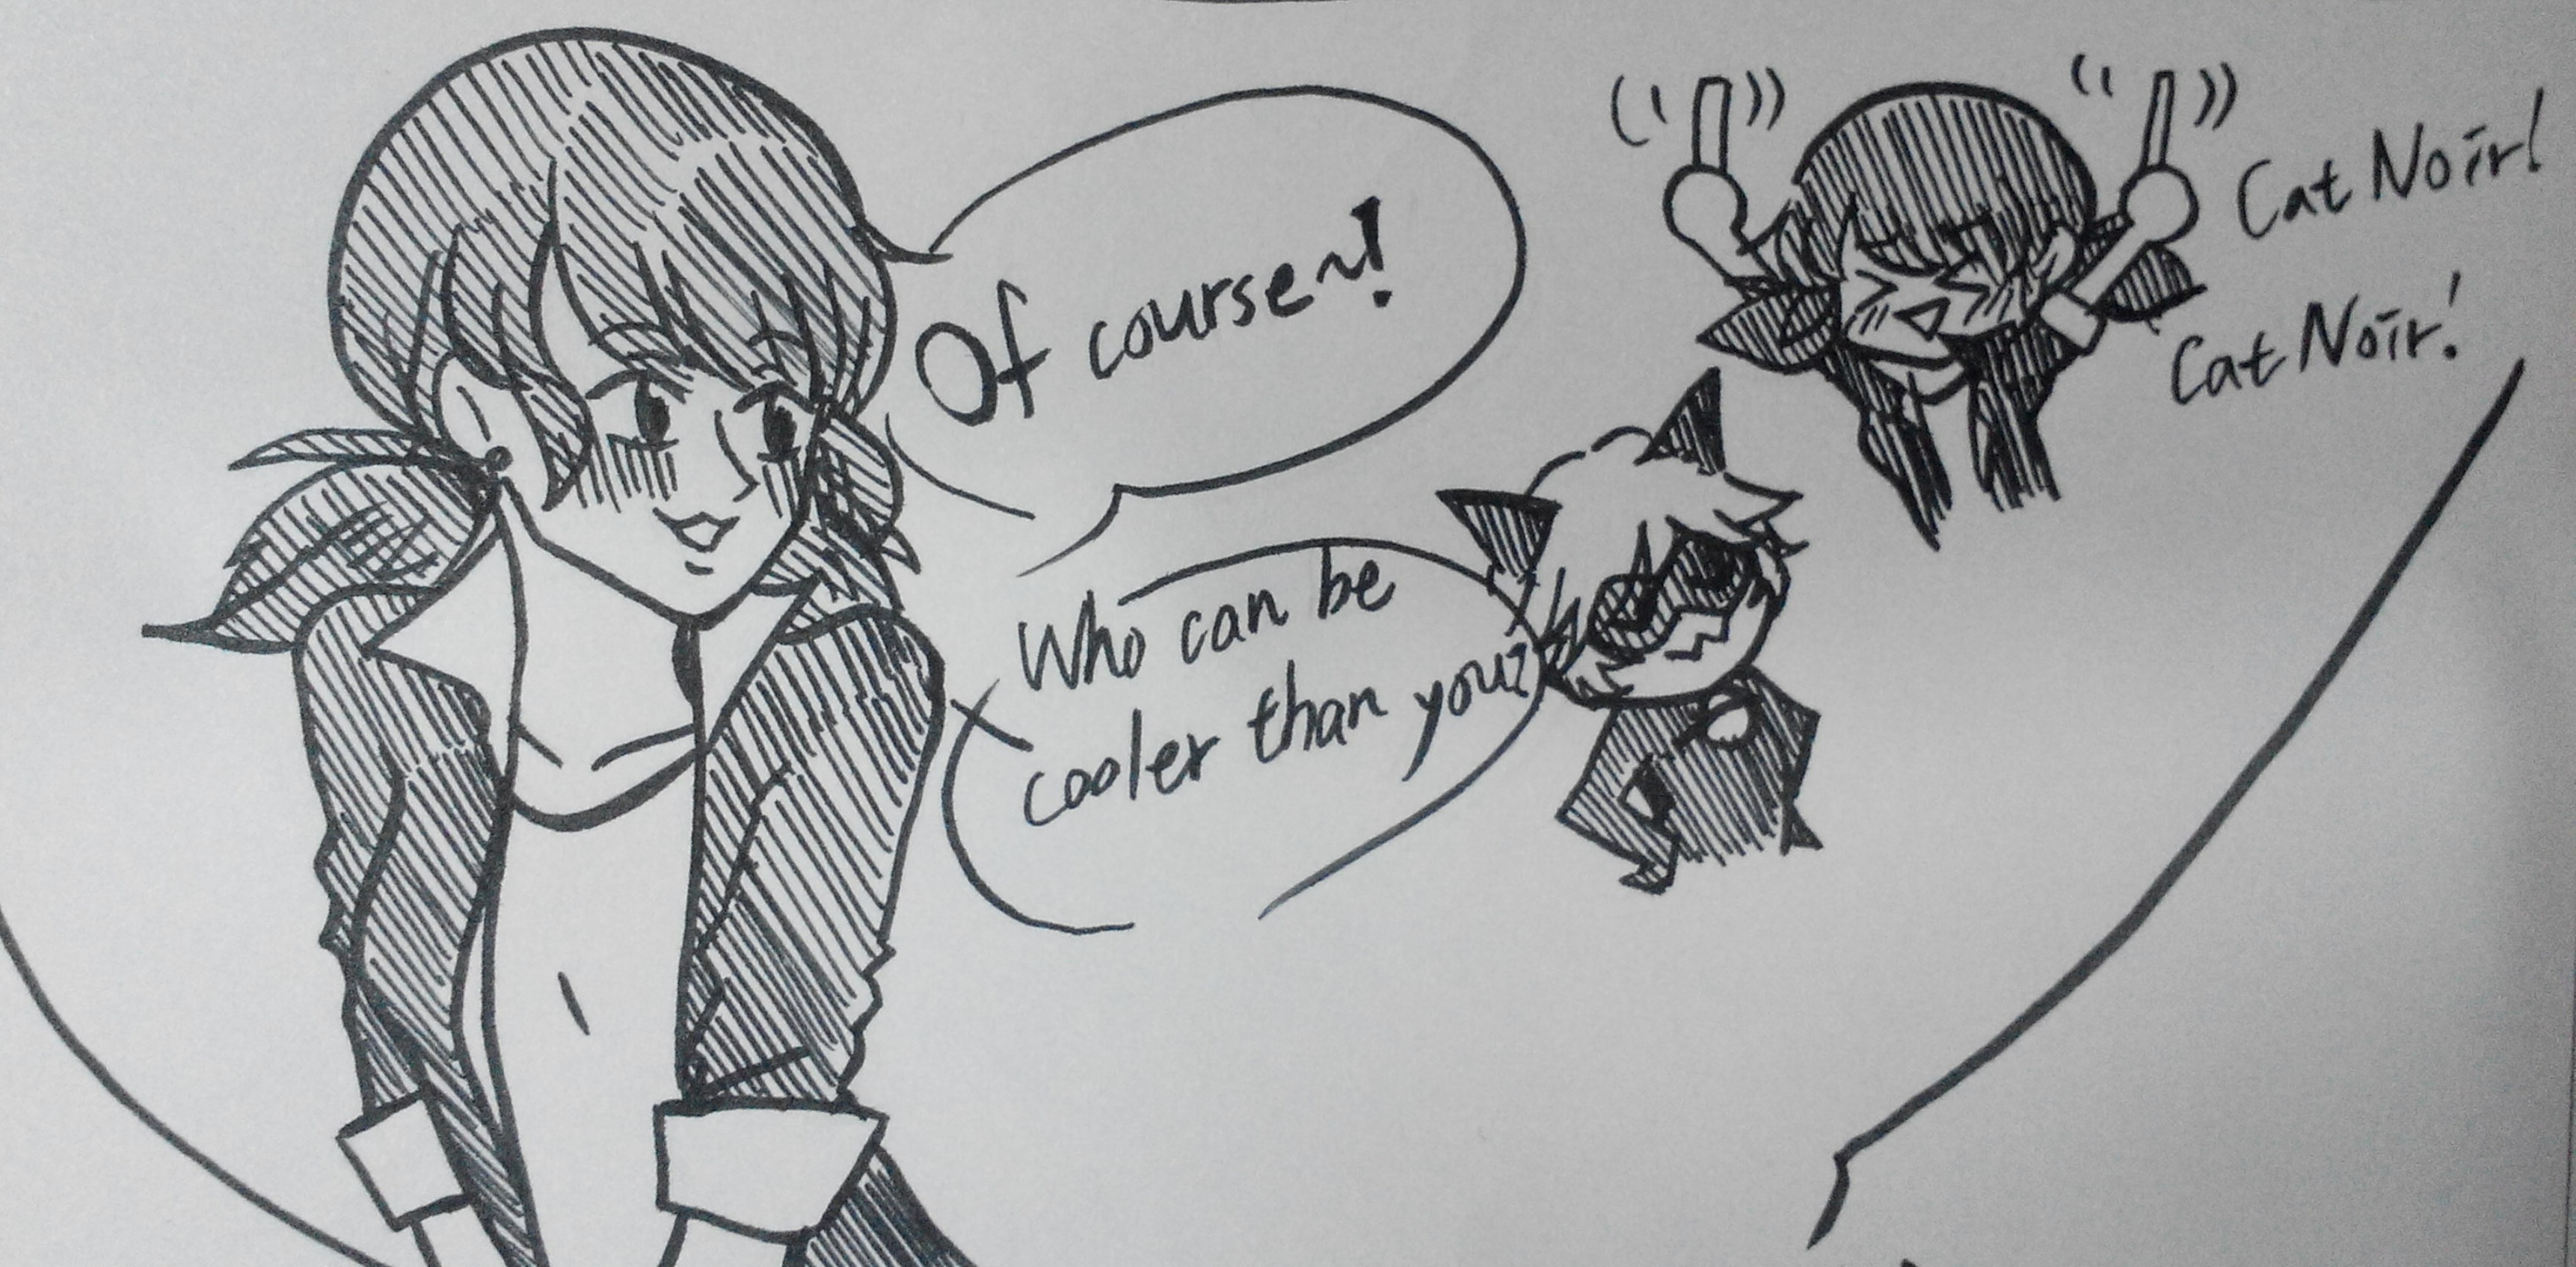 Of course~!
Who can be
cooler than you?
Cat Noir!
Cat Noir!